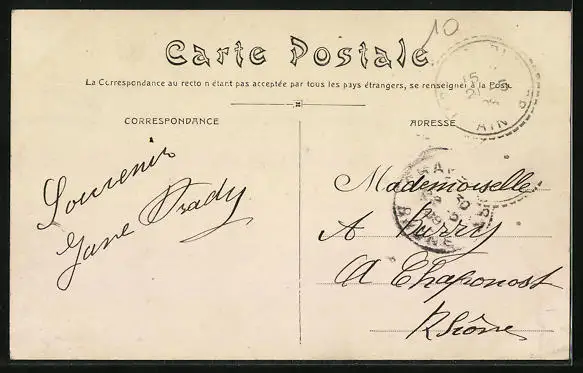 10
Carte Postale
La Correspondance au recto n'étant pas acceptée par tous les pays étrangers, se renseigner à la Poste
CORRESPONDANCE
ADRESSE
AIN
Souvenir
RHONE
Mademoiselle
A
A Chaponost
Rhône